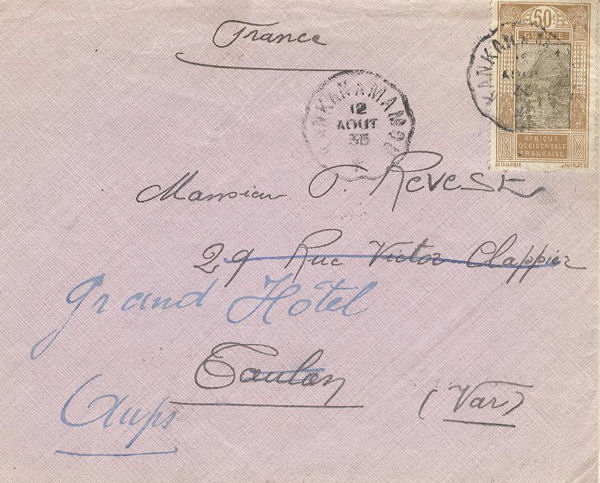 France
50c
GUINÉE
AFRIQUE
OCCIDENTALE
FRANÇAISE
KANKAN A MAMOU
12
AOUT
35
Monsieur P. Revest
29 Rue Victor Clappier
Grand Hôtel
Toulon
(Var)
Aups